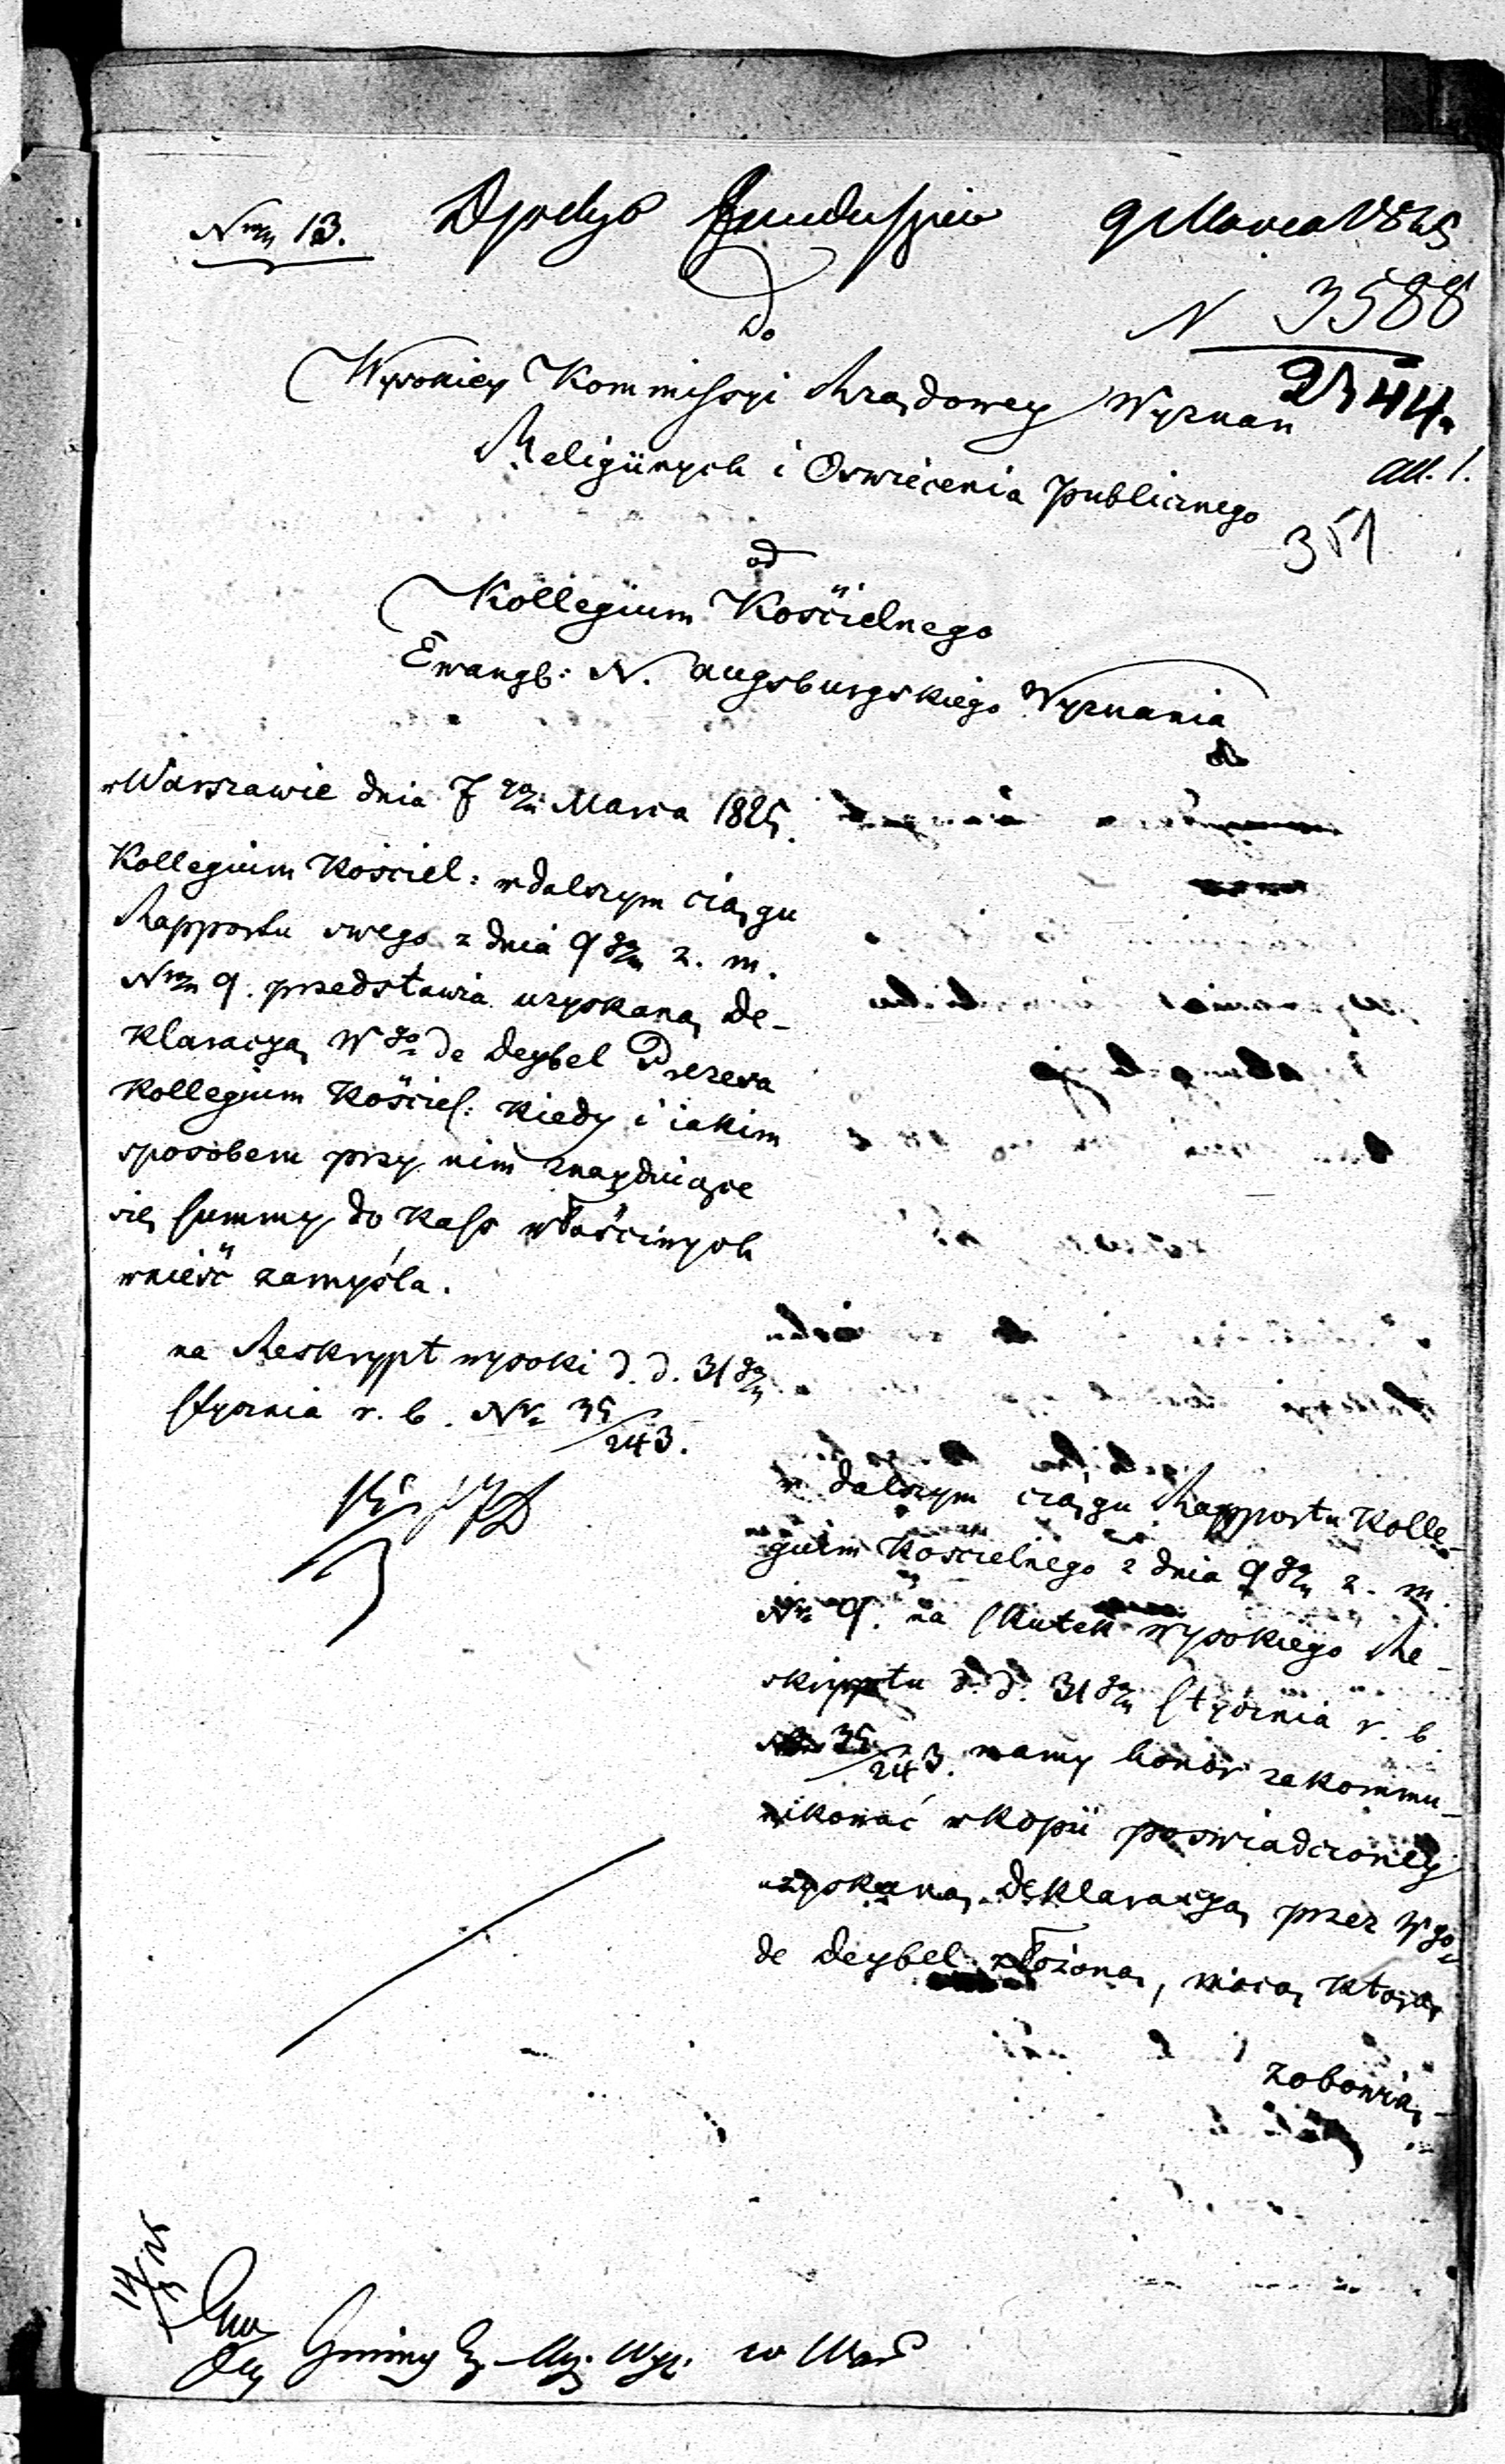 Nro 13.
Dyrekcyo Funduszów
9 Marca 1825
N 3588
2544.
all. 1.
351
do
Wysokiey Kommissyi Rządowey Wyznań
Religiinych i Oswiecenia Publicznego
od
Kollegium Kościelnego
Ewangl: N. Augsburgskiego Wyznania
w Warszawie dnia 7go Marca 1825.
Kollegium Kościel: w dalszym ciągu
Rapportu swego z dnia 9go z. m.
Nro 9. przedstawia uzyskaną De-
klaracyą Wgo de Deybel Prezesa
Kollegium Kościel: kiedy i iakim
sposobem przy nim znayduiące
się summy do Kass właściwych
wnieść zamyśla.
na Reskrypt wysoki d. d. 31go
Stycznia r. b. Nro 35/243.
w dalszym ciągu Rapportu Kolle-
gium Kościelnego z dnia 9go z. m.
Nro 9. na skutek wysokiego Re-
skryptu d. d. 31go Stycznia r. b.
Nro 35/243. mamy honor zakommu-
nikować w kopii poswiadczoney
uzyskaną Deklaracyą przez Wgo
de Deybel złożoną, mocą którey
zobowią-
Gminy Ew. Aug. Wyz. w Warś